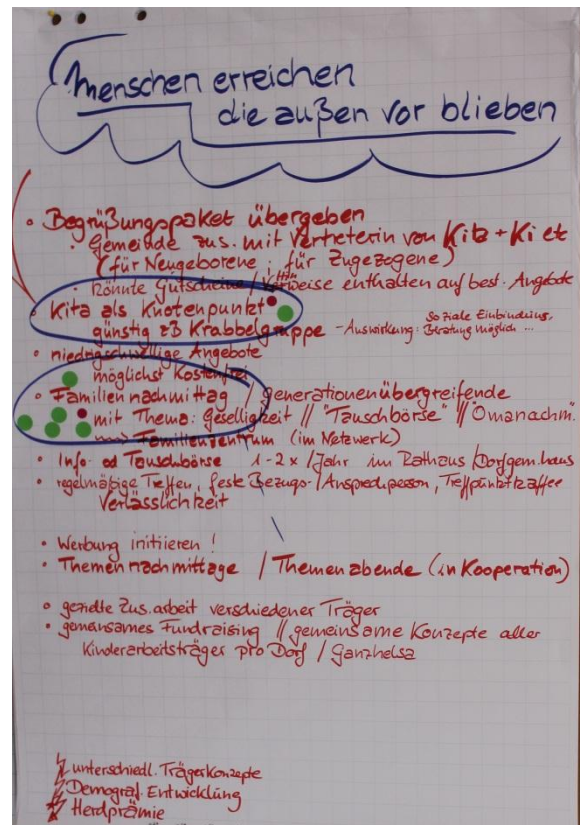 Menschen erreichen
die außen vor blieben
• Begrüßungspaket übergeben
• Gemeinde zus. mit Vertreterin von Kita + Ki et
(für Neugeborene; für Zugezogene)
• könnte Gutscheine / Verweise enthalten auf best. Angebote
• Kita als Knotenpunkt
günstig zB Krabbelgruppe - Auswirkung: Soziale Einbindung,
Beratung möglich ...
• niedrigschwellige Angebote
möglichst Kostenfrei
• Familiennachmittag / generationenübergreifende
mit Thema: Geselligkeit // "Tauschbörse" // "Omanachm."
Familienzentrum (im Netzwerk)
• Info- od Tauschbörse 1-2 x / Jahr im Rathaus / Dorfgem.haus
• regelmäßige Treffen, feste Bezugs-/Ansprechperson, Treffpunktkaffee
Verlässlichkeit
• Werbung initiieren!
• Themennachmittage / Themenabende (in Kooperation)
• gezielte Zus.arbeit verschiedener Träger
• gemeinsames Fundraising // gemeinsame Konzepte aller
Kinderarbeitsträger pro Dorf / Ganzhelsa
unterschiedl. Trägerkonzepte
Demograf. Entwicklung
Herdprämie